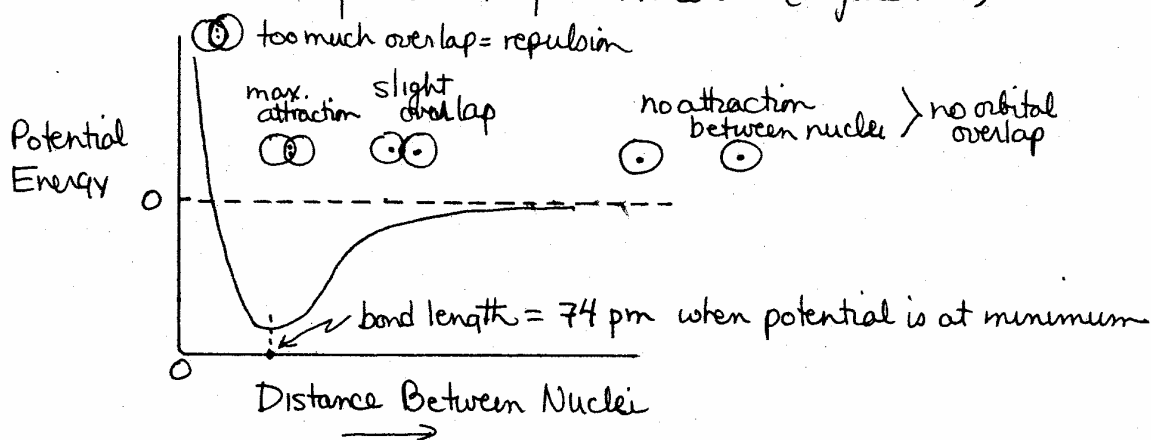 too much overlap = repulsion
max. attraction
slight overlap
no attraction between nuclei > no orbital overlap
Potential Energy
0
bond length = 74 pm when potential is at minimum
0
Distance Between Nuclei